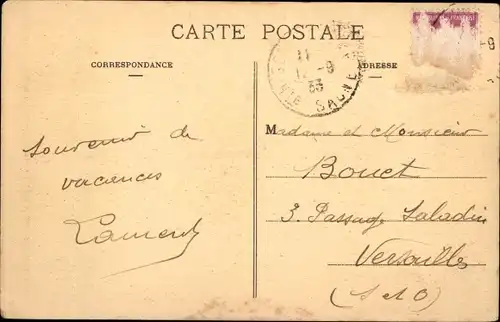 CARTE POSTALE
CORRESPONDANCE
ADRESSE
11
12 - 9
33
HTE SAONE
- 9
Souvenir de
vacances
Laurent
Madame et Monsieur
Bouet
3. Passage Saladin
Versailles
(S et O)